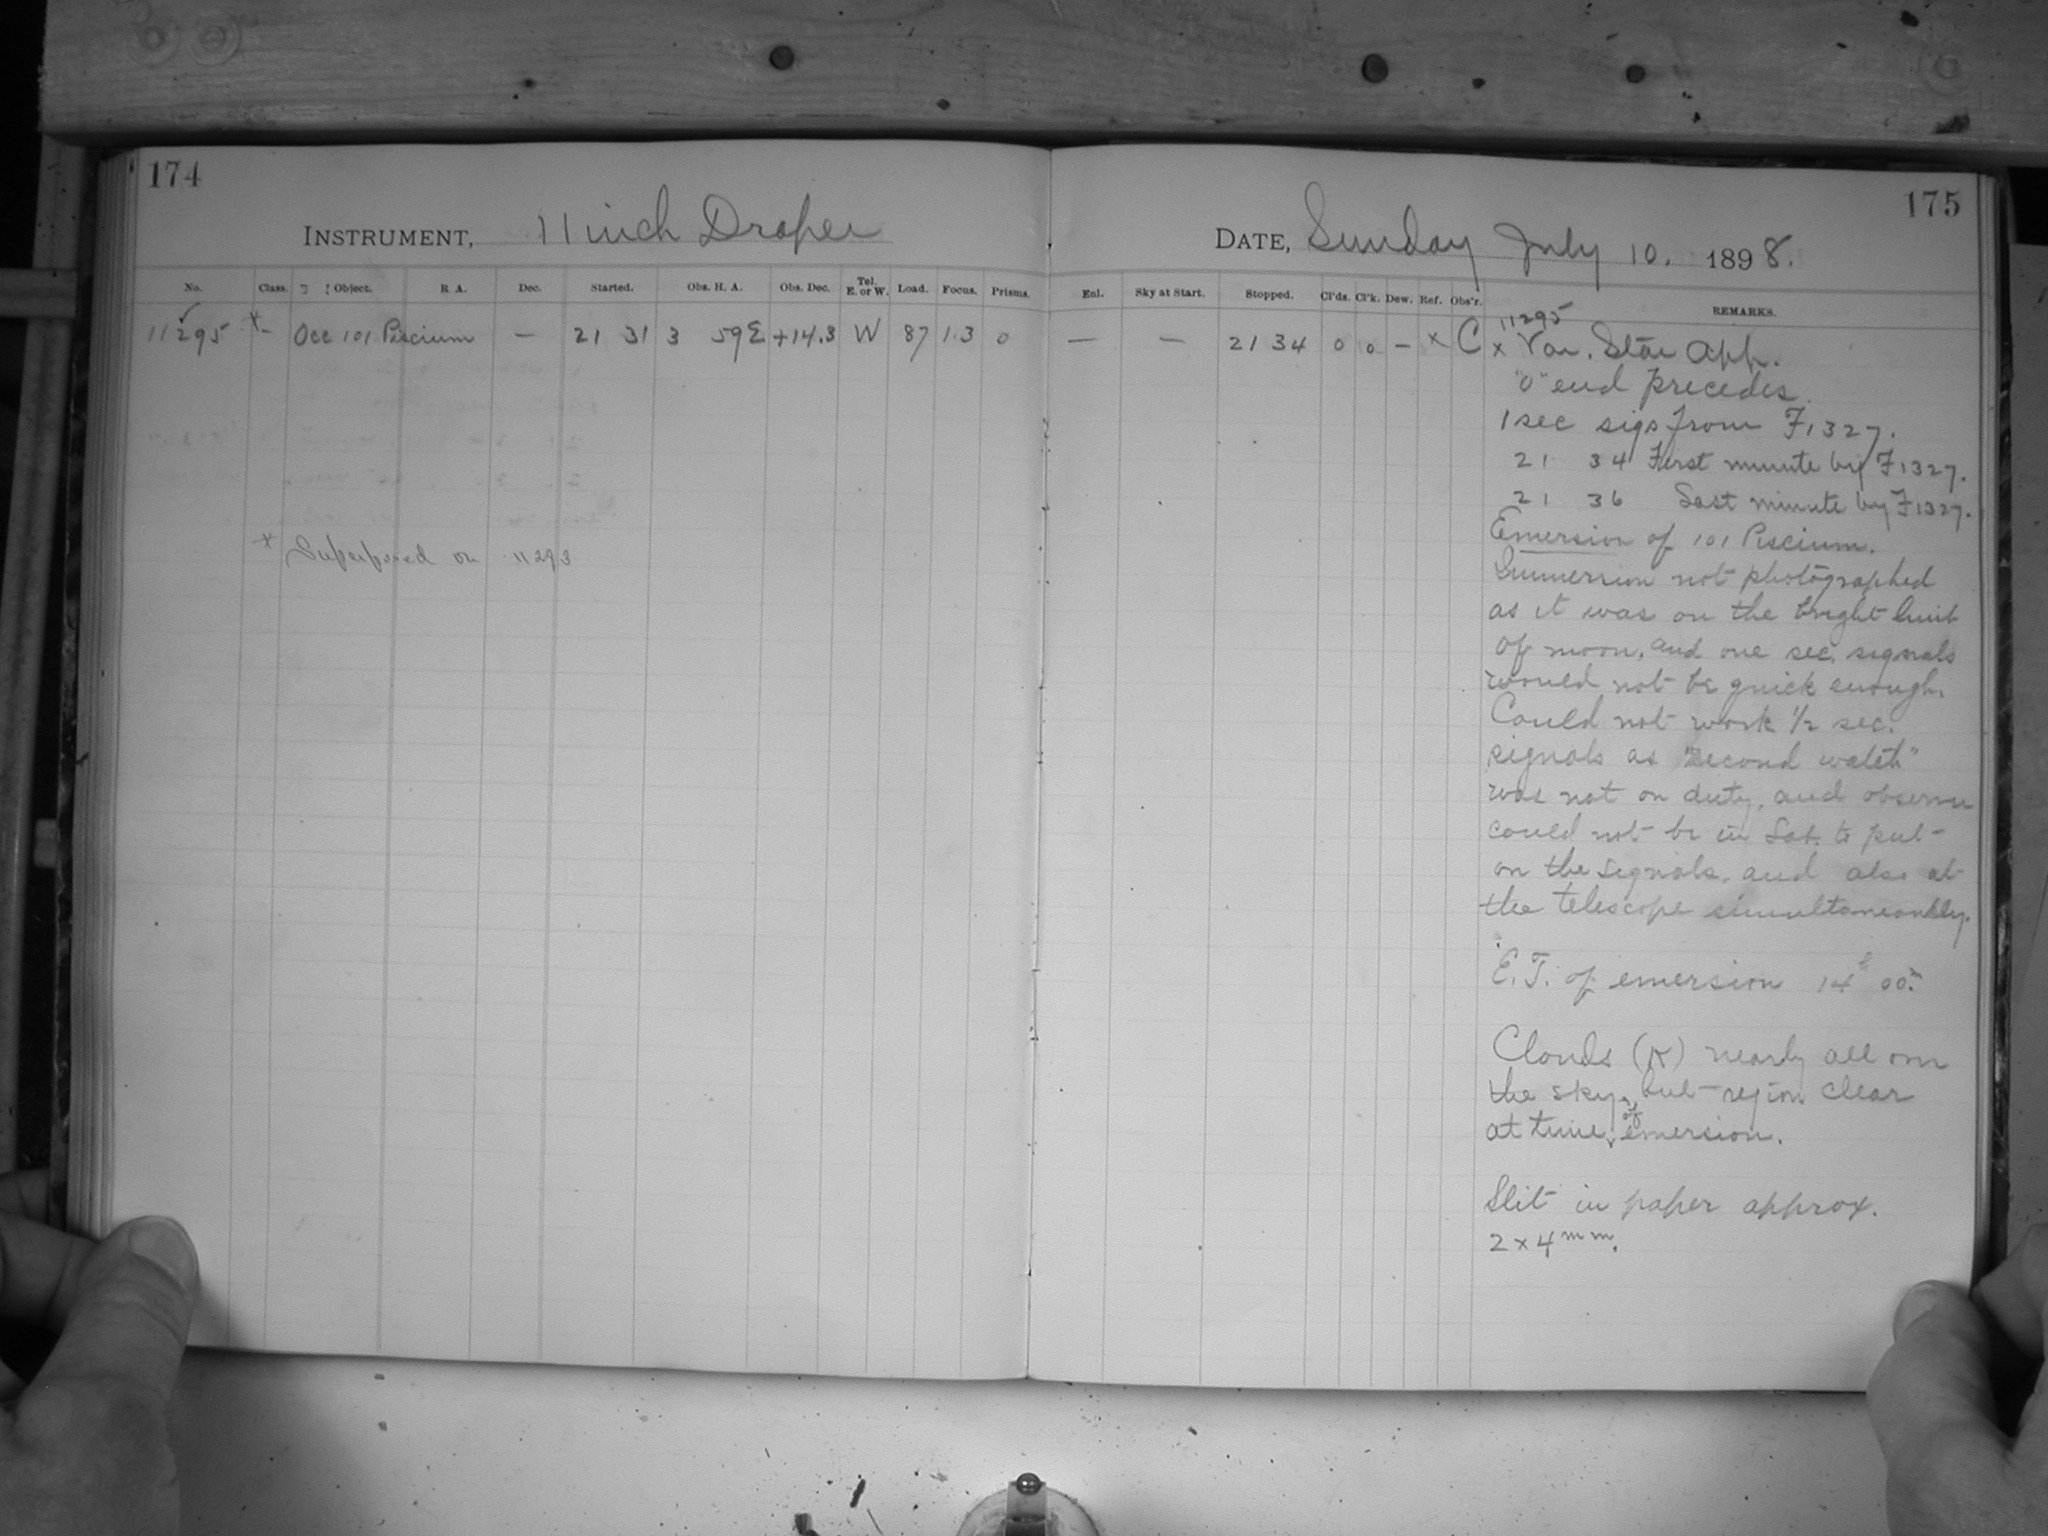 174
INSTRUMENT, 11 inch Draper
No. Class. Object. R A. Dec. Started. Obs. H. A. Obs. Dec. Tel. E. or W. Load. Focus. Prisms.
11295 x - Occ 101 Piscium — 21 31 3 59 E +14.3 W 87 1.3 0
x Superposed on 11293
175
DATE, Sunday July 10. 1898.
Enl. Sky at Start. Stopped. Cl'ds. Cl'k. Dew. Ref. Obs'r. REMARKS.
— — 21 34 0 0 – x C
11295
x Var. Star App.
"0" end precedes.
1 sec sigs from F1327.
21 34 First minute by F1327.
21 36 Last minute by F1327.
Emersion of 101 Piscium.
Immersion not photographed
as it was on the bright limb
of moon, and one sec. signals
would not be quick enough.
Could not work 1/2 sec.
signals as "second watch"
was not on duty, and observer
could not be in Lab. to put
on the signals, and also at
the telescope simultaneously.
E.T. of emersion 14h 00m.
Clouds (K) nearly all over
the sky, but region clear
at time of emersion.
Slit in paper approx.
2 x 4 mm.